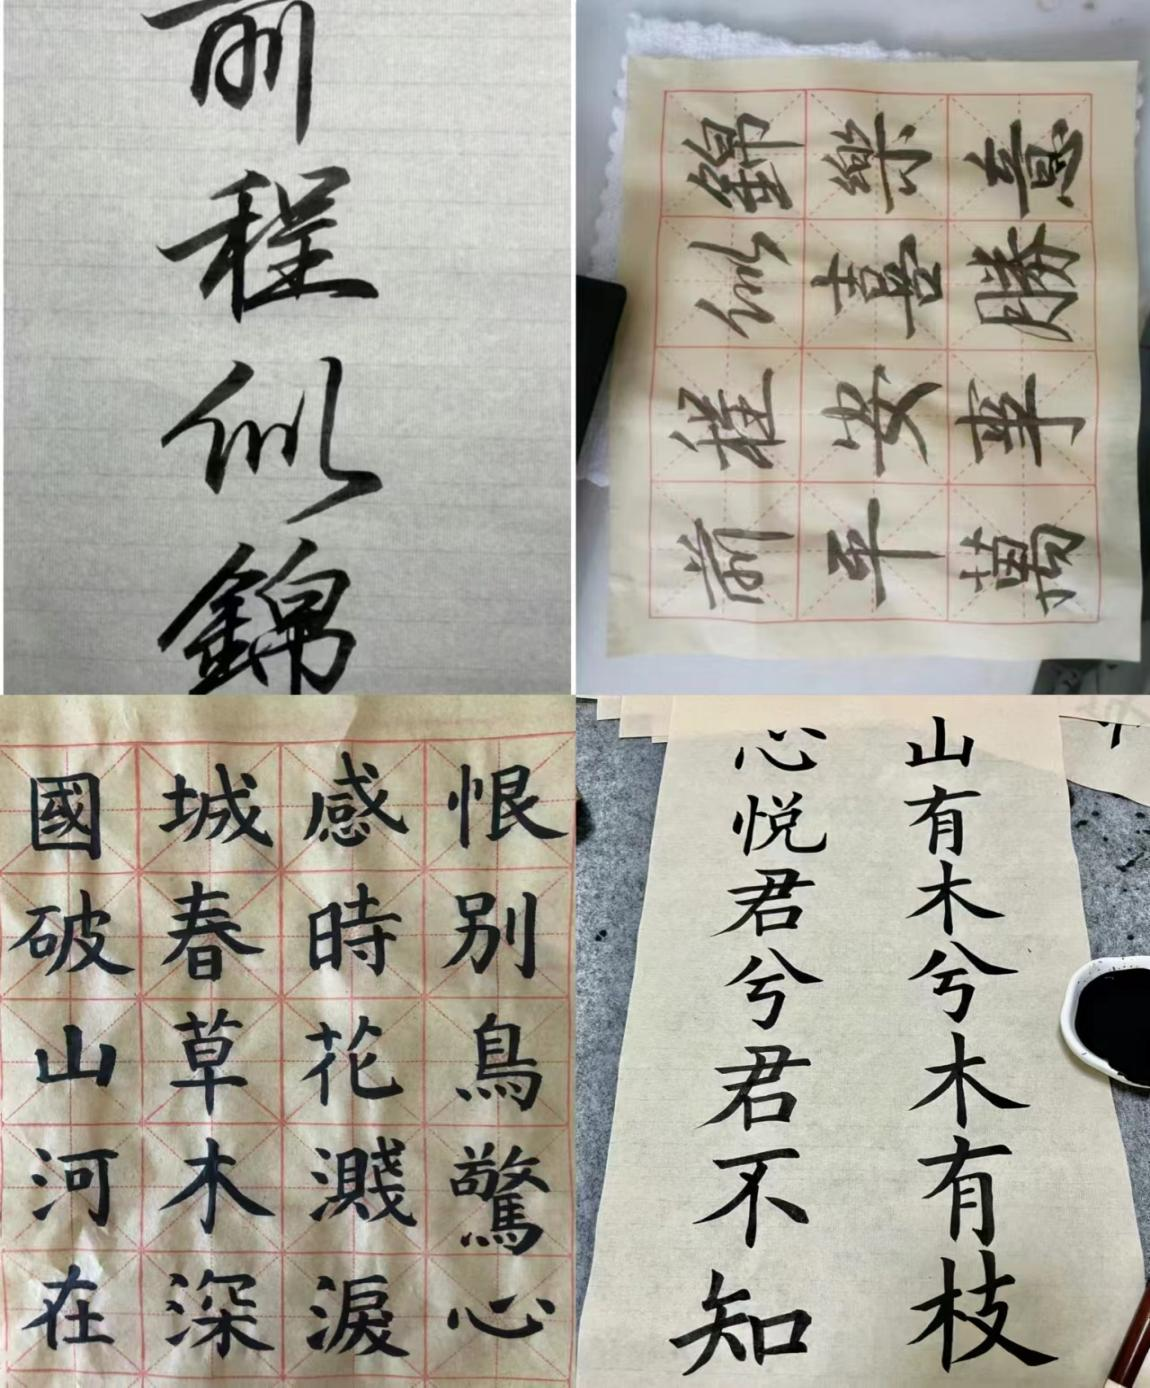 前程似錦
前程似錦
平安喜樂
萬事勝意
國破山河在
城春草木深
感時花濺淚
恨别鳥驚心
山有木兮木有枝
心悦君兮君不知